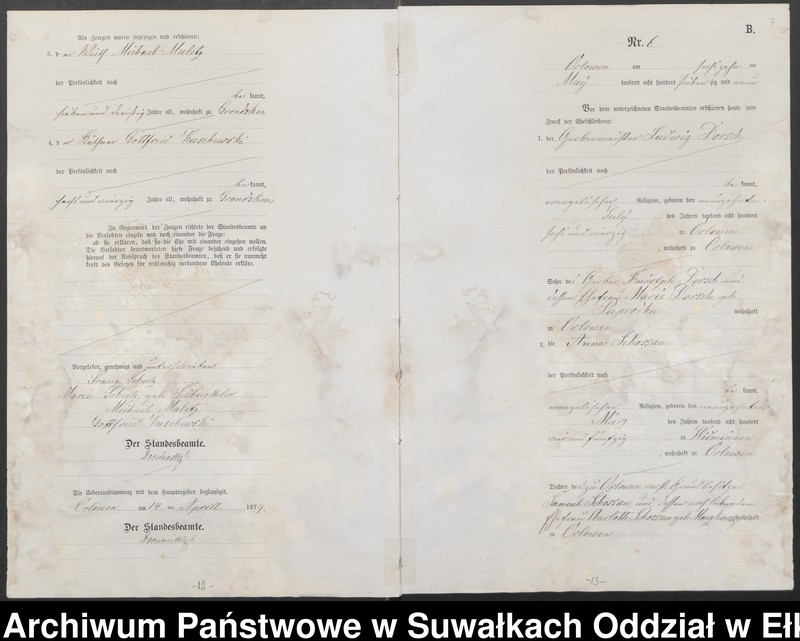 Als Zeugen waren zugezogen und erschienen:
3. der Wirth Michael Maletz
der Persönlichkeit nach
be kannt,
sieben und dreißig Jahre alt, wohnhaft zu Grondzken
4. der Käthner Gottfried Kuschewski
der Persönlichkeit nach
be kannt,
sechs und vierzig Jahre alt, wohnhaft zu Grondzken
In Gegenwart der Zeugen richtete der Standesbeamte an
die Verlobten einzeln und nach einander die Frage:
ob sie erklären, daß sie die Ehe mit einander eingehen wollen.
Die Verlobten beantworteten diese Frage bejahend und erfolgte
hierauf der Ausspruch des Standesbeamten, daß er sie nunmehr
kraft des Gesetzes für rechtmäßig verbundene Eheleute erkläre.
Vorgelesen, genehmigt und unterschrieben
Maria geb.
Michael Maletz
Gottfried Kuschewski
Der Standesbeamte.
Die Uebereinstimmung mit dem Hauptregister beglaubigt.
Orlowen am 14 ten Aprill 1879.
Der Standesbeamte.
-12-
7
B.
Nr. 6
Orlowen am sechszehn ten
May tausend acht hundert sieben zig und neun
Vor dem unterzeichneten Standesbeamten erschienen heute zum
Zweck der Eheschließung:
1. der Gerbermeister Ludwig Dorsch
der Persönlichkeit nach
be kannt,
evangelischer Religion, geboren den neunzehnten
July des Jahres tausend acht hundert
sechs und vierzig zu Orlowen
, wohnhaft zu Orlowen
Sohn des Gerber Rudolph Dorsch und
dessen Ehefrau Marie Dorsch geb
wohnhaft
zu Orlowen
2. die Anna Schossau
der Persönlichkeit nach
be kannt,
evangelischer Religion, geboren den neunzehnten
März des Jahres tausend acht hundert
vier und fünfzig zu
, wohnhaft zu Orlowen
Tochter des zu Orlowen
Samuel Schossau und dessen noch lebenden
Ehefrau Charlotte Schossau geb. wohnhaft
zu Orlowen
-13-
Archiwum Państwowe w Suwałkach Oddział w Eł